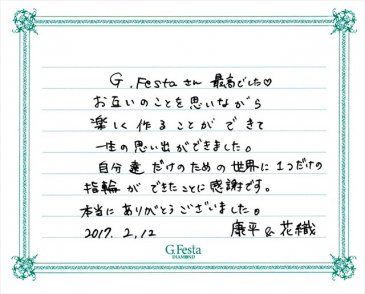 G.Festaさん 最高でした♡
お互いのことを思いながら
楽しく作ることができて
一生の思い出ができました。
自分達だけのための世界に1つだけの
指輪ができたことに感謝です。
本当にありがとうございました。
2017.2.12 康平&花織
G.Festa
DIAMOND